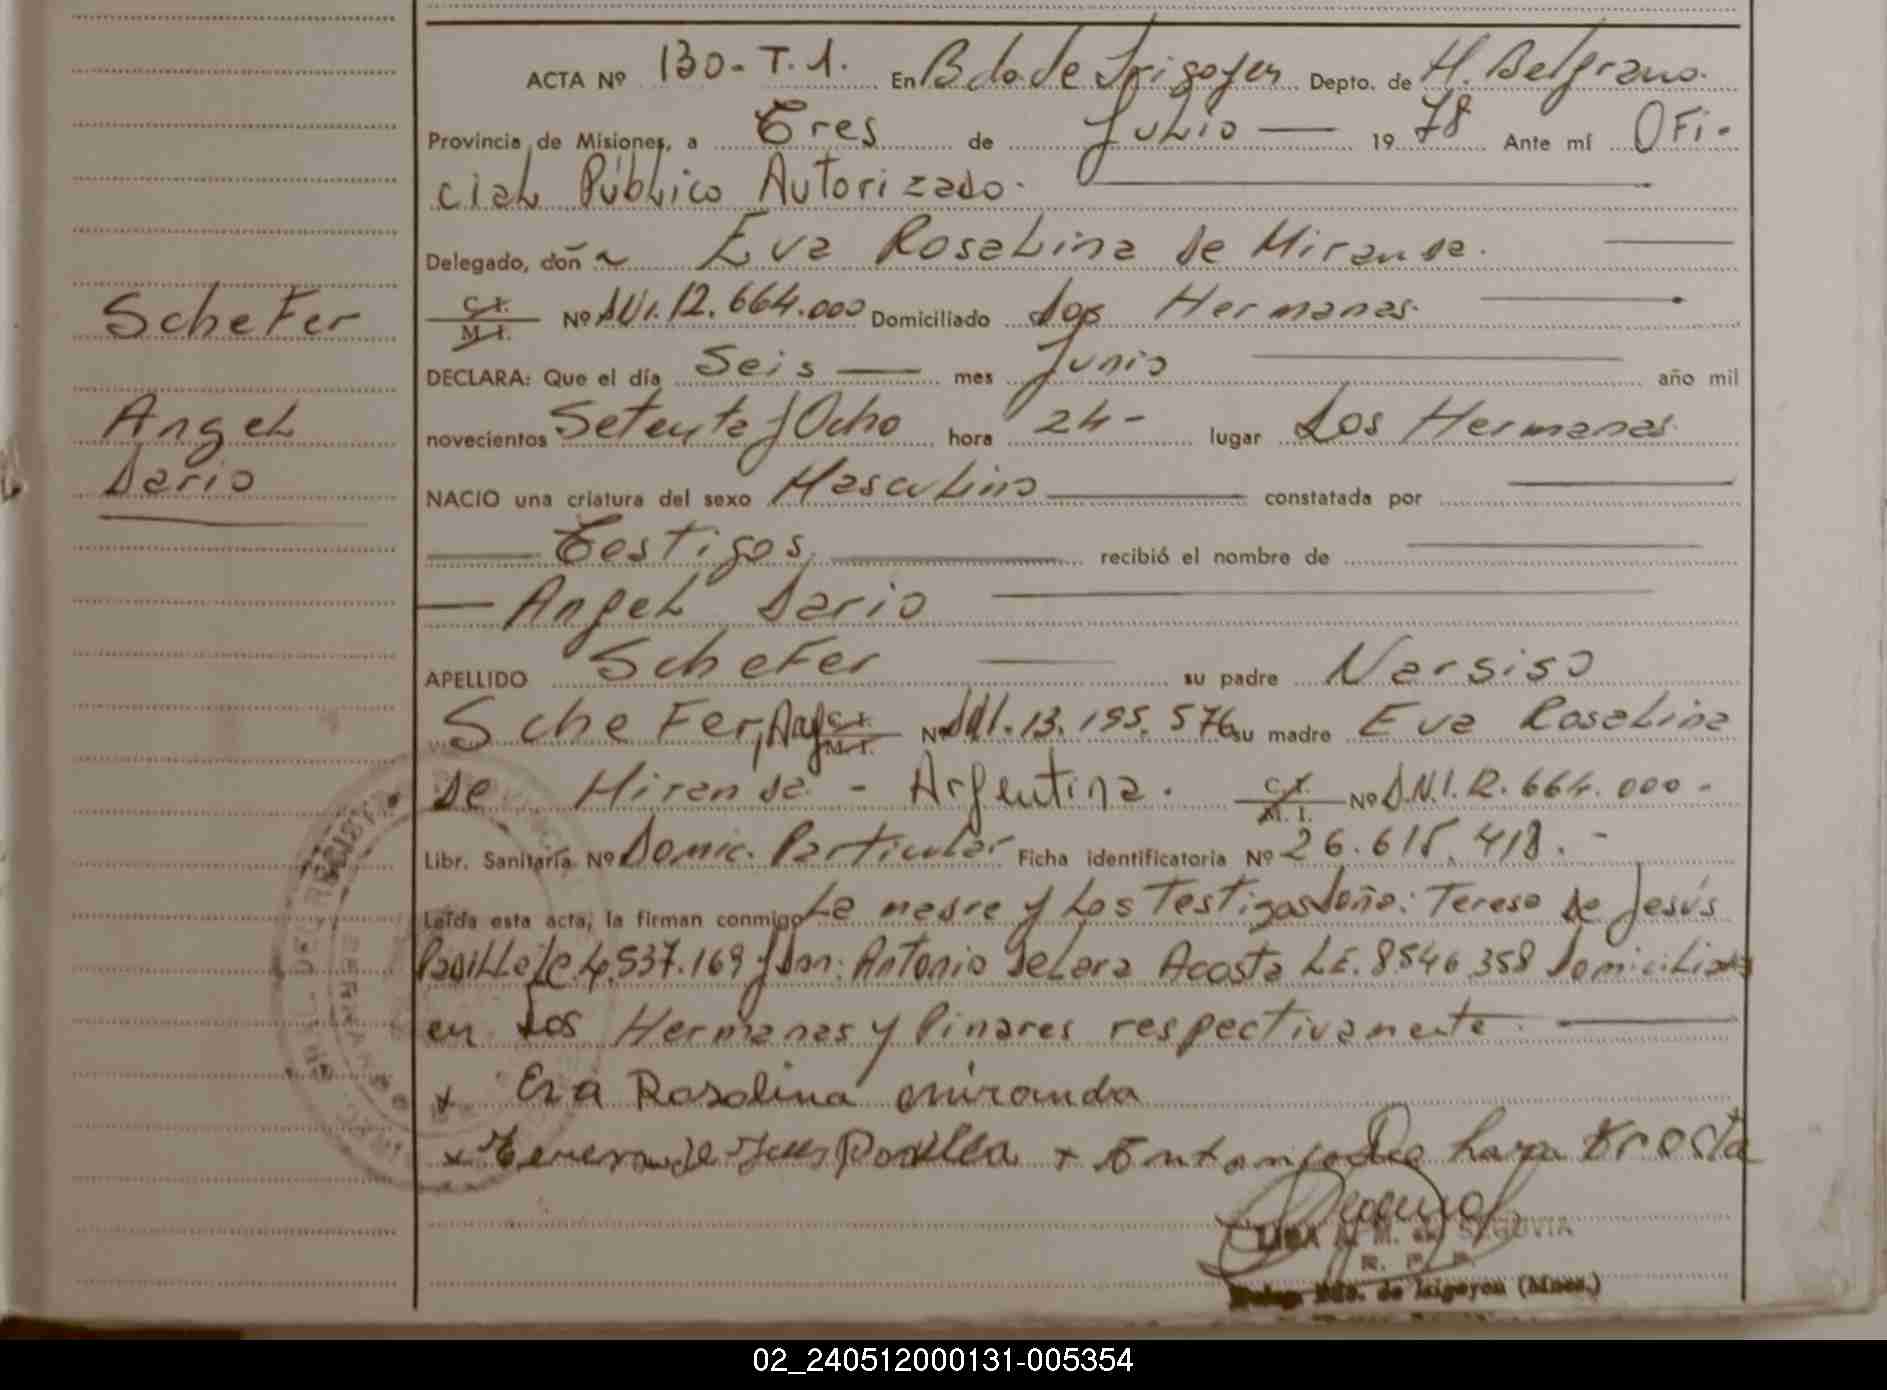 ACTA Nº 130-T.1. En Bdo de Irigoyen Depto. de H. Belgrano.
Provincia de Misiones, a Tres de Julio — 1978 Ante mí Ofi-
cial Público Autorizado.
Delegado, doñ a Eva Rosalina de Miranda.
Schefer
C.I. M.I. Nº DNI. 12.664.000 Domiciliado Dos Hermanas.
DECLARA: Que el día Seis — mes Junio año mil
Angel
novecientos Setenta y Ocho hora 24- lugar Dos Hermanas
Dario
NACIO una criatura del sexo Masculino constatada por
Testigos recibió el nombre de
Angel Dario
APELLIDO Schefer su padre Narsiso
Schefer, Arg C.I. M.I. Nº DNI. 13.195.576 su madre Eva Rosalina
de Miranda - Argentina. C.I. M.I. Nº D.N.I. 12.664.000-
Libr. Sanitaria Nº Domic. Particular Ficha identificatoria Nº 26.615.418.-
Leída esta acta, la firman conmigo La madre y Los Testigos doña: Teresa de Jesús
Padilla Lc 4.537.169 y don: Antonio De Lara Acosta L.E. 8.546.358 Domiciliados
en Dos Hermanas y Pinares respectivamente.
x Eva Rosalina miranda
x Teresa de Jesus Padilla x Antonio De Lara
SEGOVIA
Bdo. de Irigoyen (Mnes.)
02_240512000131-005354